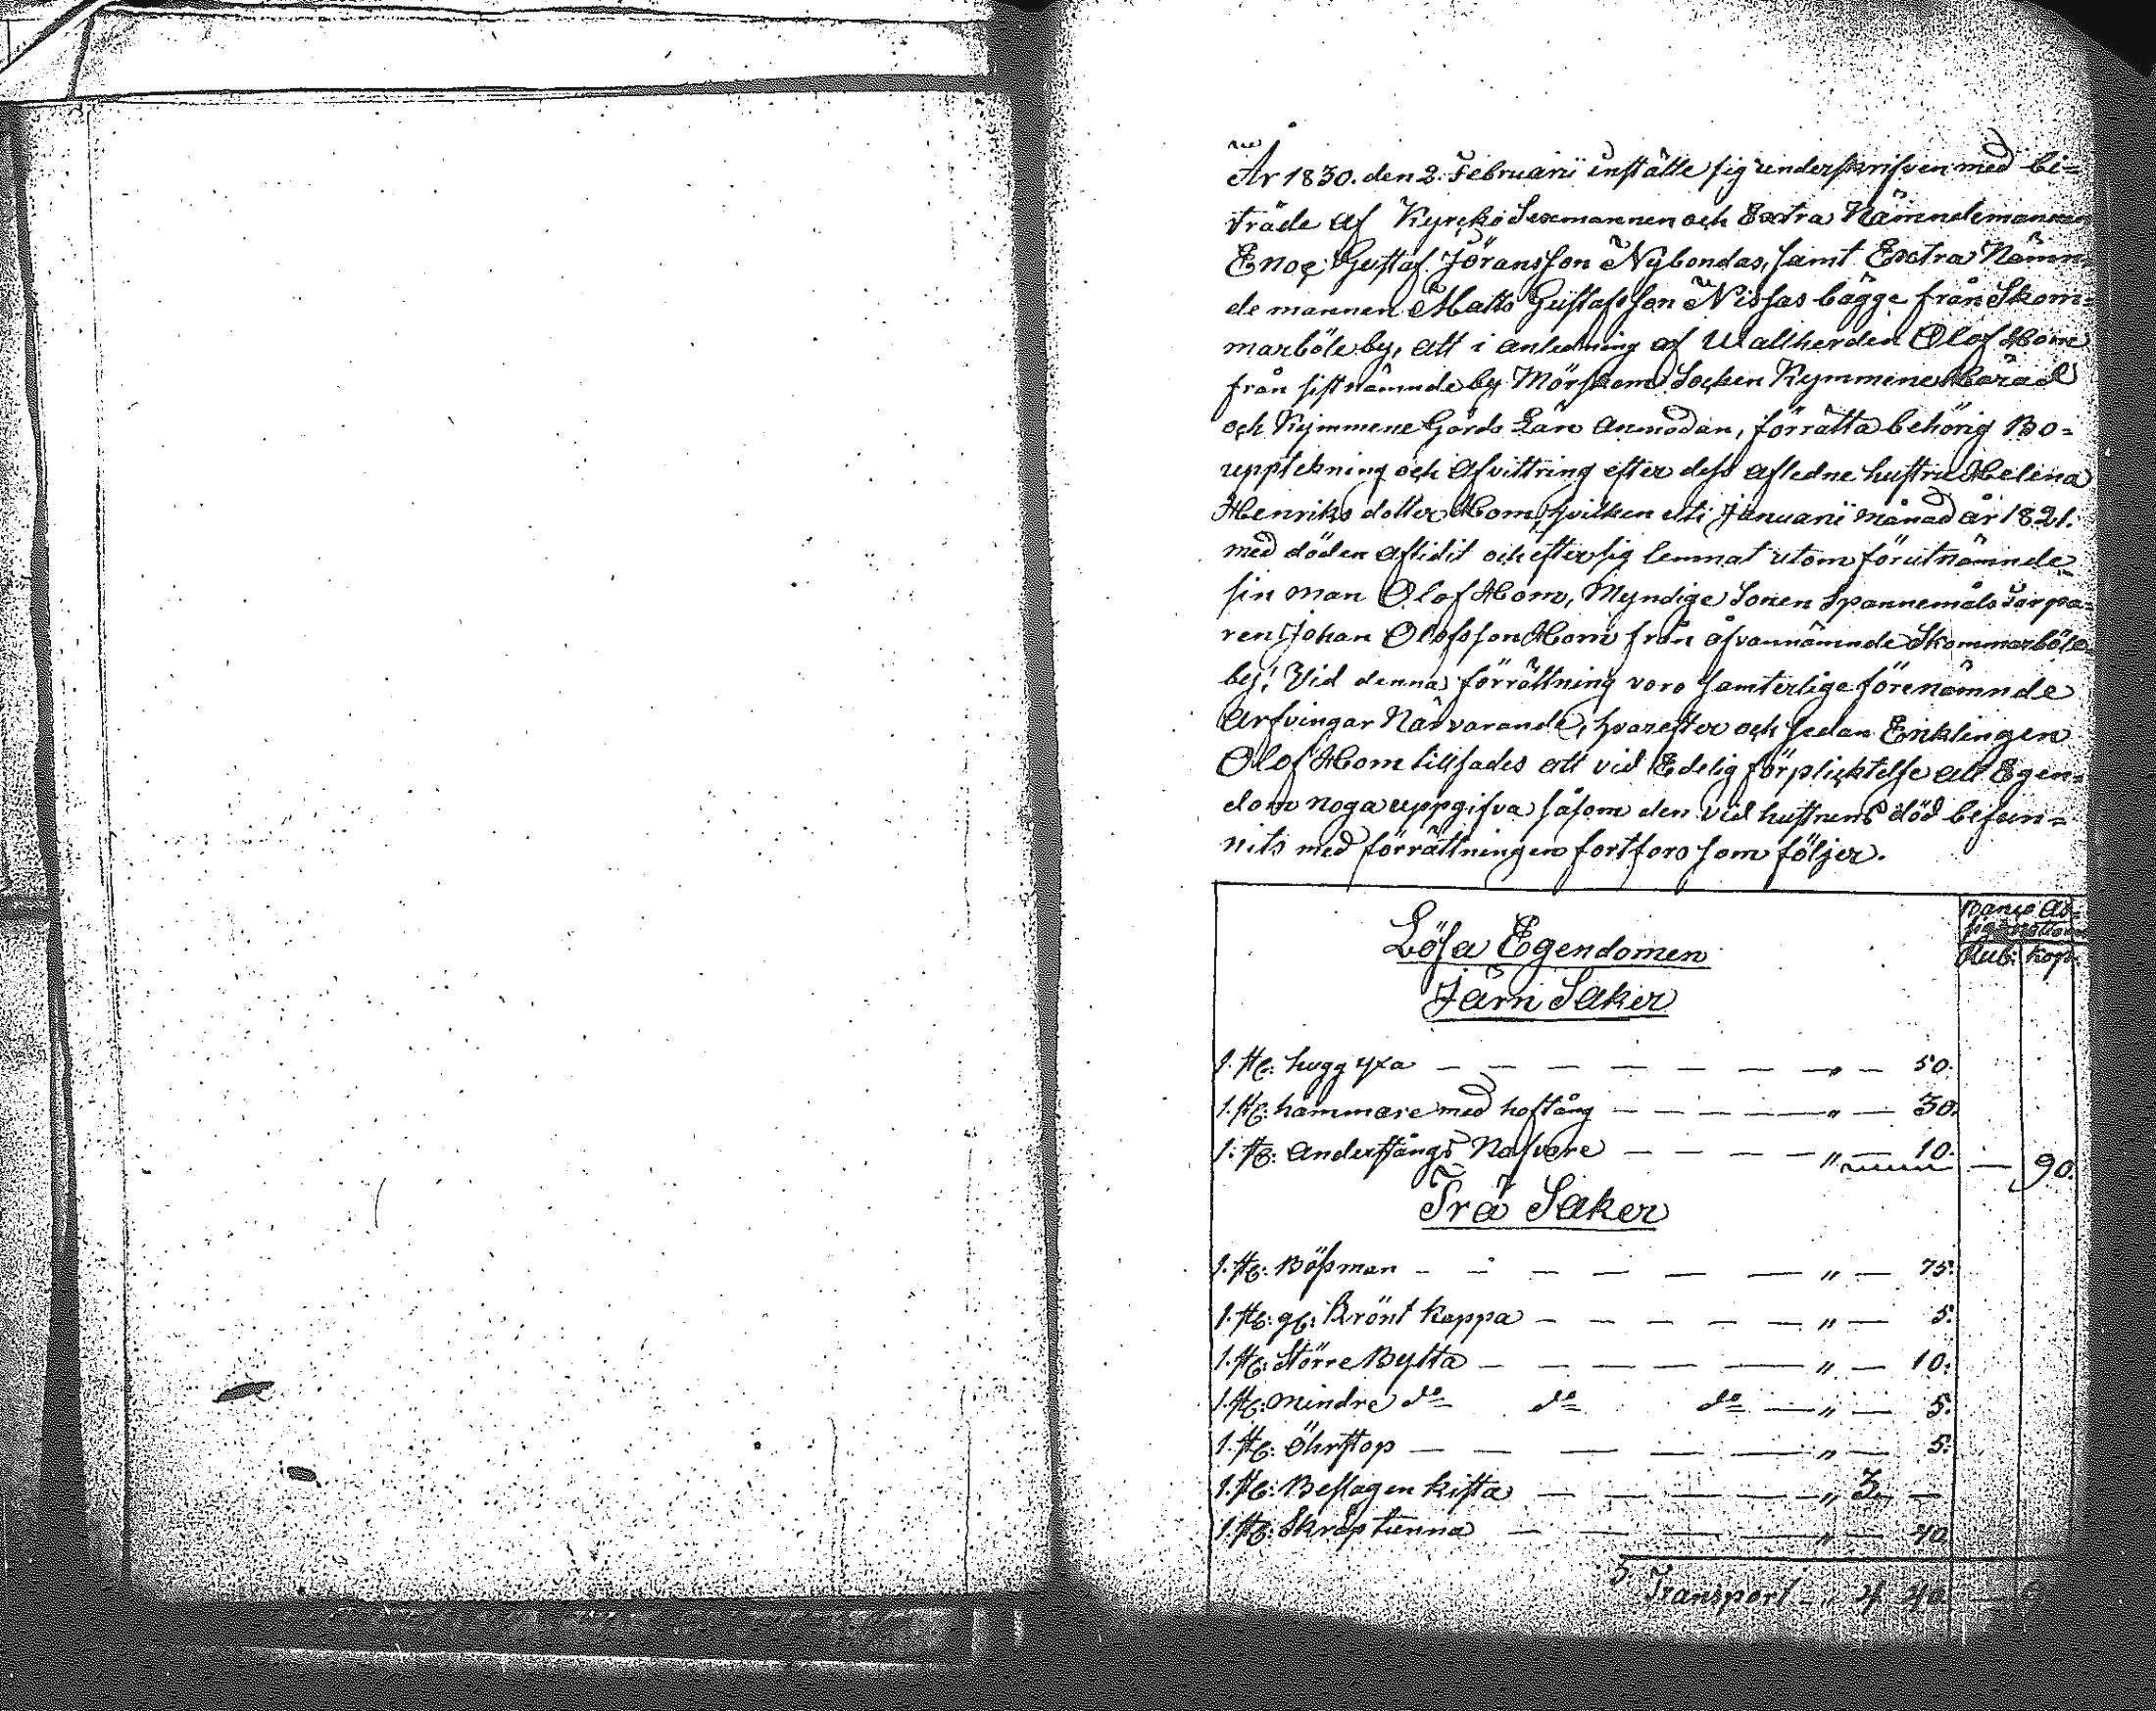 År 1830. den 2. Februarii instälte sig underskrifven med bi=
träde af Kyrcko Sexmannen och Extra Nämndemannen
Enoc Gustaf Jöransson Nybondas, samt Extra Nämn=
de mannen Matts Gustafsson Nissas bägge från Skom=
marböle by, att i anledning af Wallherden Olof Hom
från sistnämnde by Mörskom Socken Kymmene Härad
och Kymmene Gårds Län anmodan, förrätta behörig Bo=
uppteckning och Afvittring efter dess afledne hustru Helena
Henriks dotter Hom, hvilken uti Januarii månad år 1821.
med döden aflidit och efter sig lemnat utom förutnämnde
sin man Olof Hom, Myndige Sonen Spannemåls Torpa=
ren Johan Olofsson Hom från åfvannämnde Skommarböle
by! Vid denna förrättning voro samterlige förenämnde
Arfvingar Närvarande, hvarefter och sedan Enklingen
Olof Hom tillsades att vid Edelig förplicktelse all Egen=
dom noga uppgifva såsom den vid hustruns död befun=
nits med förrättningen fortfors som följer.
Banco As=
signationer
Rub: Kop:
Lösa Egendomen
Järn Saker
1. st: hugg yxa — — — — — — — „ — 50.
1. st: hammare med hoftång — — — — „ — 30.
1. st: Anderstångs Nafvare — — — — „ — 10. — 90.
Trä Saker
1. st: Bössman — — — — — — „ — 75.
1. st: gl: Krönt kappa — — — — — „ — 5.
1. st: Större Bytta — — — — — „ — 10.
1. st: mindre do do do — „ — 5.
1. st: Öhrstop — — — — — „ — 5.
1. st: Beslagen kista — — — — — „ 3. —
1. st: Skräp tunna — — — — „ — 40.
Transport — „ 4 40. —